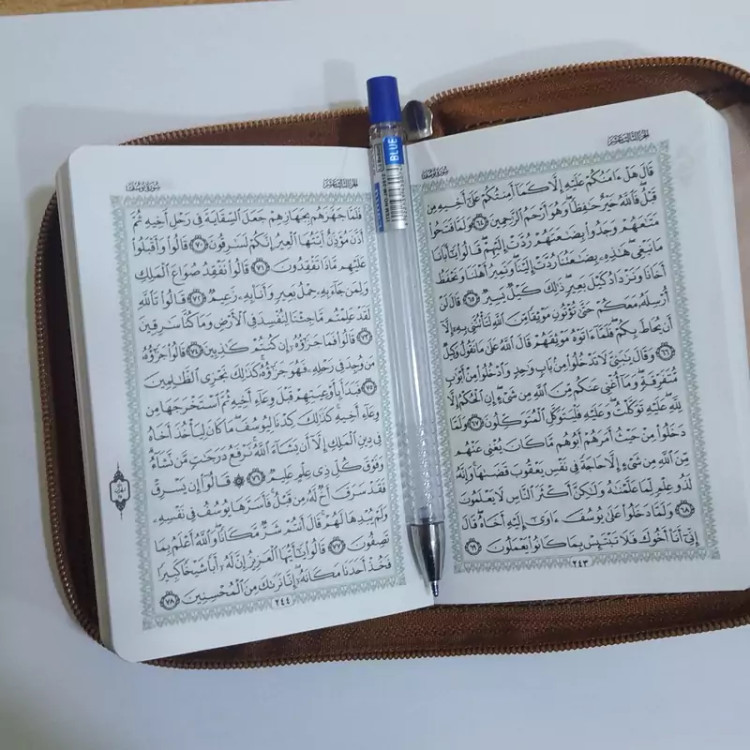 سُورَةُ يُوسُفَ
الجُزْءُ الثَّالِثَ عَشَرَ
قَالَ هَلْ ءَامَنُكُمْ عَلَيْهِ إِلَّا كَمَآ أَمِنتُكُمْ عَلَىٰٓ أَخِيهِ مِن
قَبْلُ فَٱللَّهُ خَيْرٌ حَٰفِظًا وَهُوَ أَرْحَمُ ٱلرَّٰحِمِينَ ٦٤ وَلَمَّا فَتَحُوا۟
مَتَٰعَهُمْ وَجَدُوا۟ بِضَٰعَتَهُمْ رُدَّتْ إِلَيْهِمْ قَالُوا۟ يَٰٓأَبَانَا
مَا نَبْغِى هَٰذِهِۦ بِضَٰعَتُنَا رُدَّتْ إِلَيْنَا وَنَمِيرُ أَهْلَنَا وَنَحْفَظُ
أَخَانَا وَنَزْدَادُ كَيْلَ بَعِيرٍ ذَٰلِكَ كَيْلٌ يَسِيرٌ ٦٥ قَالَ لَنْ
أُرْسِلَهُۥ مَعَكُمْ حَتَّىٰ تُؤْتُونِ مَوْثِقًا مِّنَ ٱللَّهِ لَتَأْتُنَّنِى بِهِۦٓ إِلَّآ
أَن يُحَاطَ بِكُمْ فَلَمَّآ ءَاتَوْهُ مَوْثِقَهُمْ قَالَ ٱللَّهُ عَلَىٰ مَا نَقُولُ وَكِيلٌ
٦٦ وَقَالَ يَٰبَنِىَّ لَا تَدْخُلُوا۟ مِنۢ بَابٍ وَٰحِدٍ وَٱدْخُلُوا۟ مِنْ أَبْوَٰبٍ
مُّتَفَرِّقَةٍ وَمَآ أُغْنِى عَنكُم مِّنَ ٱللَّهِ مِن شَىْءٍ إِنِ ٱلْحُكْمُ إِلَّا
لِلَّهِ عَلَيْهِ تَوَكَّلْتُ وَعَلَيْهِ فَلْيَتَوَكَّلِ ٱلْمُتَوَكِّلُونَ ٦٧ وَلَمَّا
دَخَلُوا۟ مِنْ حَيْثُ أَمَرَهُمْ أَبُوهُم مَّا كَانَ يُغْنِى عَنْهُم
مِّنَ ٱللَّهِ مِن شَىْءٍ إِلَّا حَاجَةً فِى نَفْسِ يَعْقُوبَ قَضَىٰهَا وَإِنَّهُۥ
لَذُو عِلْمٍ لِّمَا عَلَّمْنَٰهُ وَلَٰكِنَّ أَكْثَرَ ٱلنَّاسِ لَا يَعْلَمُونَ
٦٨ وَلَمَّا دَخَلُوا۟ عَلَىٰ يُوسُفَ ءَاوَىٰٓ إِلَيْهِ أَخَاهُ قَالَ
إِنِّىٓ أَنَا۠ أَخُوكَ فَلَا تَبْتَئِسْ بِمَا كَانُوا۟ يَعْمَلُونَ ٦٩
٢٤٣
الجُزْءُ الثَّالِثَ عَشَرَ
سُورَةُ يُوسُفَ
فَلَمَّا جَهَّزَهُم بِجَهَازِهِمْ جَعَلَ ٱلسِّقَايَةَ فِى رَحْلِ أَخِيهِ ثُمَّ
أَذَّنَ مُؤَذِّنٌ أَيَّتُهَا ٱلْعِيرُ إِنَّكُمْ لَسَٰرِقُونَ ٧٠ قَالُوا۟ وَأَقْبَلُوا۟
عَلَيْهِم مَّاذَا تَفْقِدُونَ ٧١ قَالُوا۟ نَفْقِدُ صُوَاعَ ٱلْمَلِكِ
وَلِمَن جَآءَ بِهِۦ حِمْلُ بَعِيرٍ وَأَنَا۠ بِهِۦ زَعِيمٌ ٧٢ قَالُوا۟ تَٱللَّهِ
لَقَدْ عَلِمْتُم مَّا جِئْنَا لِنُفْسِدَ فِى ٱلْأَرْضِ وَمَا كُنَّا سَٰرِقِينَ
٧٣ قَالُوا۟ فَمَا جَزَٰٓؤُهُۥٓ إِن كُنتُمْ كَٰذِبِينَ ٧٤ قَالُوا۟ جَزَٰٓؤُهُۥ
مَن وُجِدَ فِى رَحْلِهِۦ فَهُوَ جَزَٰٓؤُهُۥ كَذَٰلِكَ نَجْزِى ٱلظَّٰلِمِينَ
٧٥ فَبَدَأَ بِأَوْعِيَتِهِمْ قَبْلَ وِعَآءِ أَخِيهِ ثُمَّ ٱسْتَخْرَجَهَا مِن
وِعَآءِ أَخِيهِ كَذَٰلِكَ كِدْنَا لِيُوسُفَ مَا كَانَ لِيَأْخُذَ أَخَاهُ
فِى دِينِ ٱلْمَلِكِ إِلَّآ أَن يَشَآءَ ٱللَّهُ نَرْفَعُ دَرَجَٰتٍ مَّن نَّشَآءُ
وَفَوْقَ كُلِّ ذِى عِلْمٍ عَلِيمٌ ٧٦ ۞ قَالُوٓا۟ إِن يَسْرِقْ
فَقَدْ سَرَقَ أَخٌ لَّهُۥ مِن قَبْلُ فَأَسَرَّهَا يُوسُفُ فِى نَفْسِهِۦ
وَلَمْ يُبْدِهَا لَهُمْ قَالَ أَنتُمْ شَرٌّ مَّكَانًا وَٱللَّهُ أَعْلَمُ بِمَا
تَصِفُونَ ٧٧ قَالُوا۟ يَٰٓأَيُّهَا ٱلْعَزِيزُ إِنَّ لَهُۥٓ أَبًا شَيْخًا كَبِيرًا
فَخُذْ أَحَدَنَا مَكَانَهُۥٓ إِنَّا نَرَىٰكَ مِنَ ٱلْمُحْسِنِينَ ٧٨
٢٤٤
BLUE